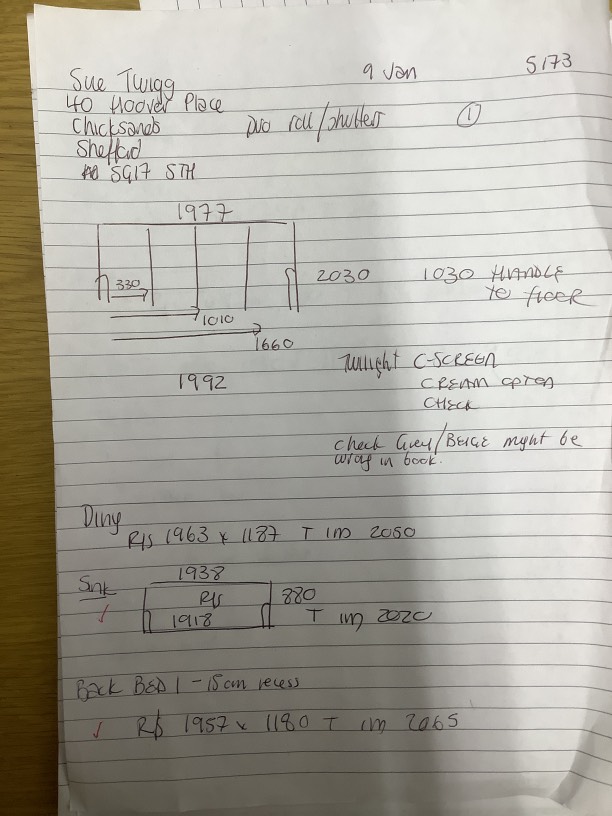 9 Jan
5173
Sue Twigg
40 Hoover Place
Chicksands
Duo roll/shutters
1
Sheffard
SG17 5TH
1977
330
2030
1030 HANDLE
TO FLOOR
1010
1660
Twilight C-SCREEN
1992
CREAM
CHECK
check Grey/BEIGE might be
in book.
Diny
R/S 1963 x 1187 T IM 2050
Sink
1938
R/S
880
1918
T IM 2020
Back BED 1 - 15cm recess
R/S 1957 x 1180 T IM 2065